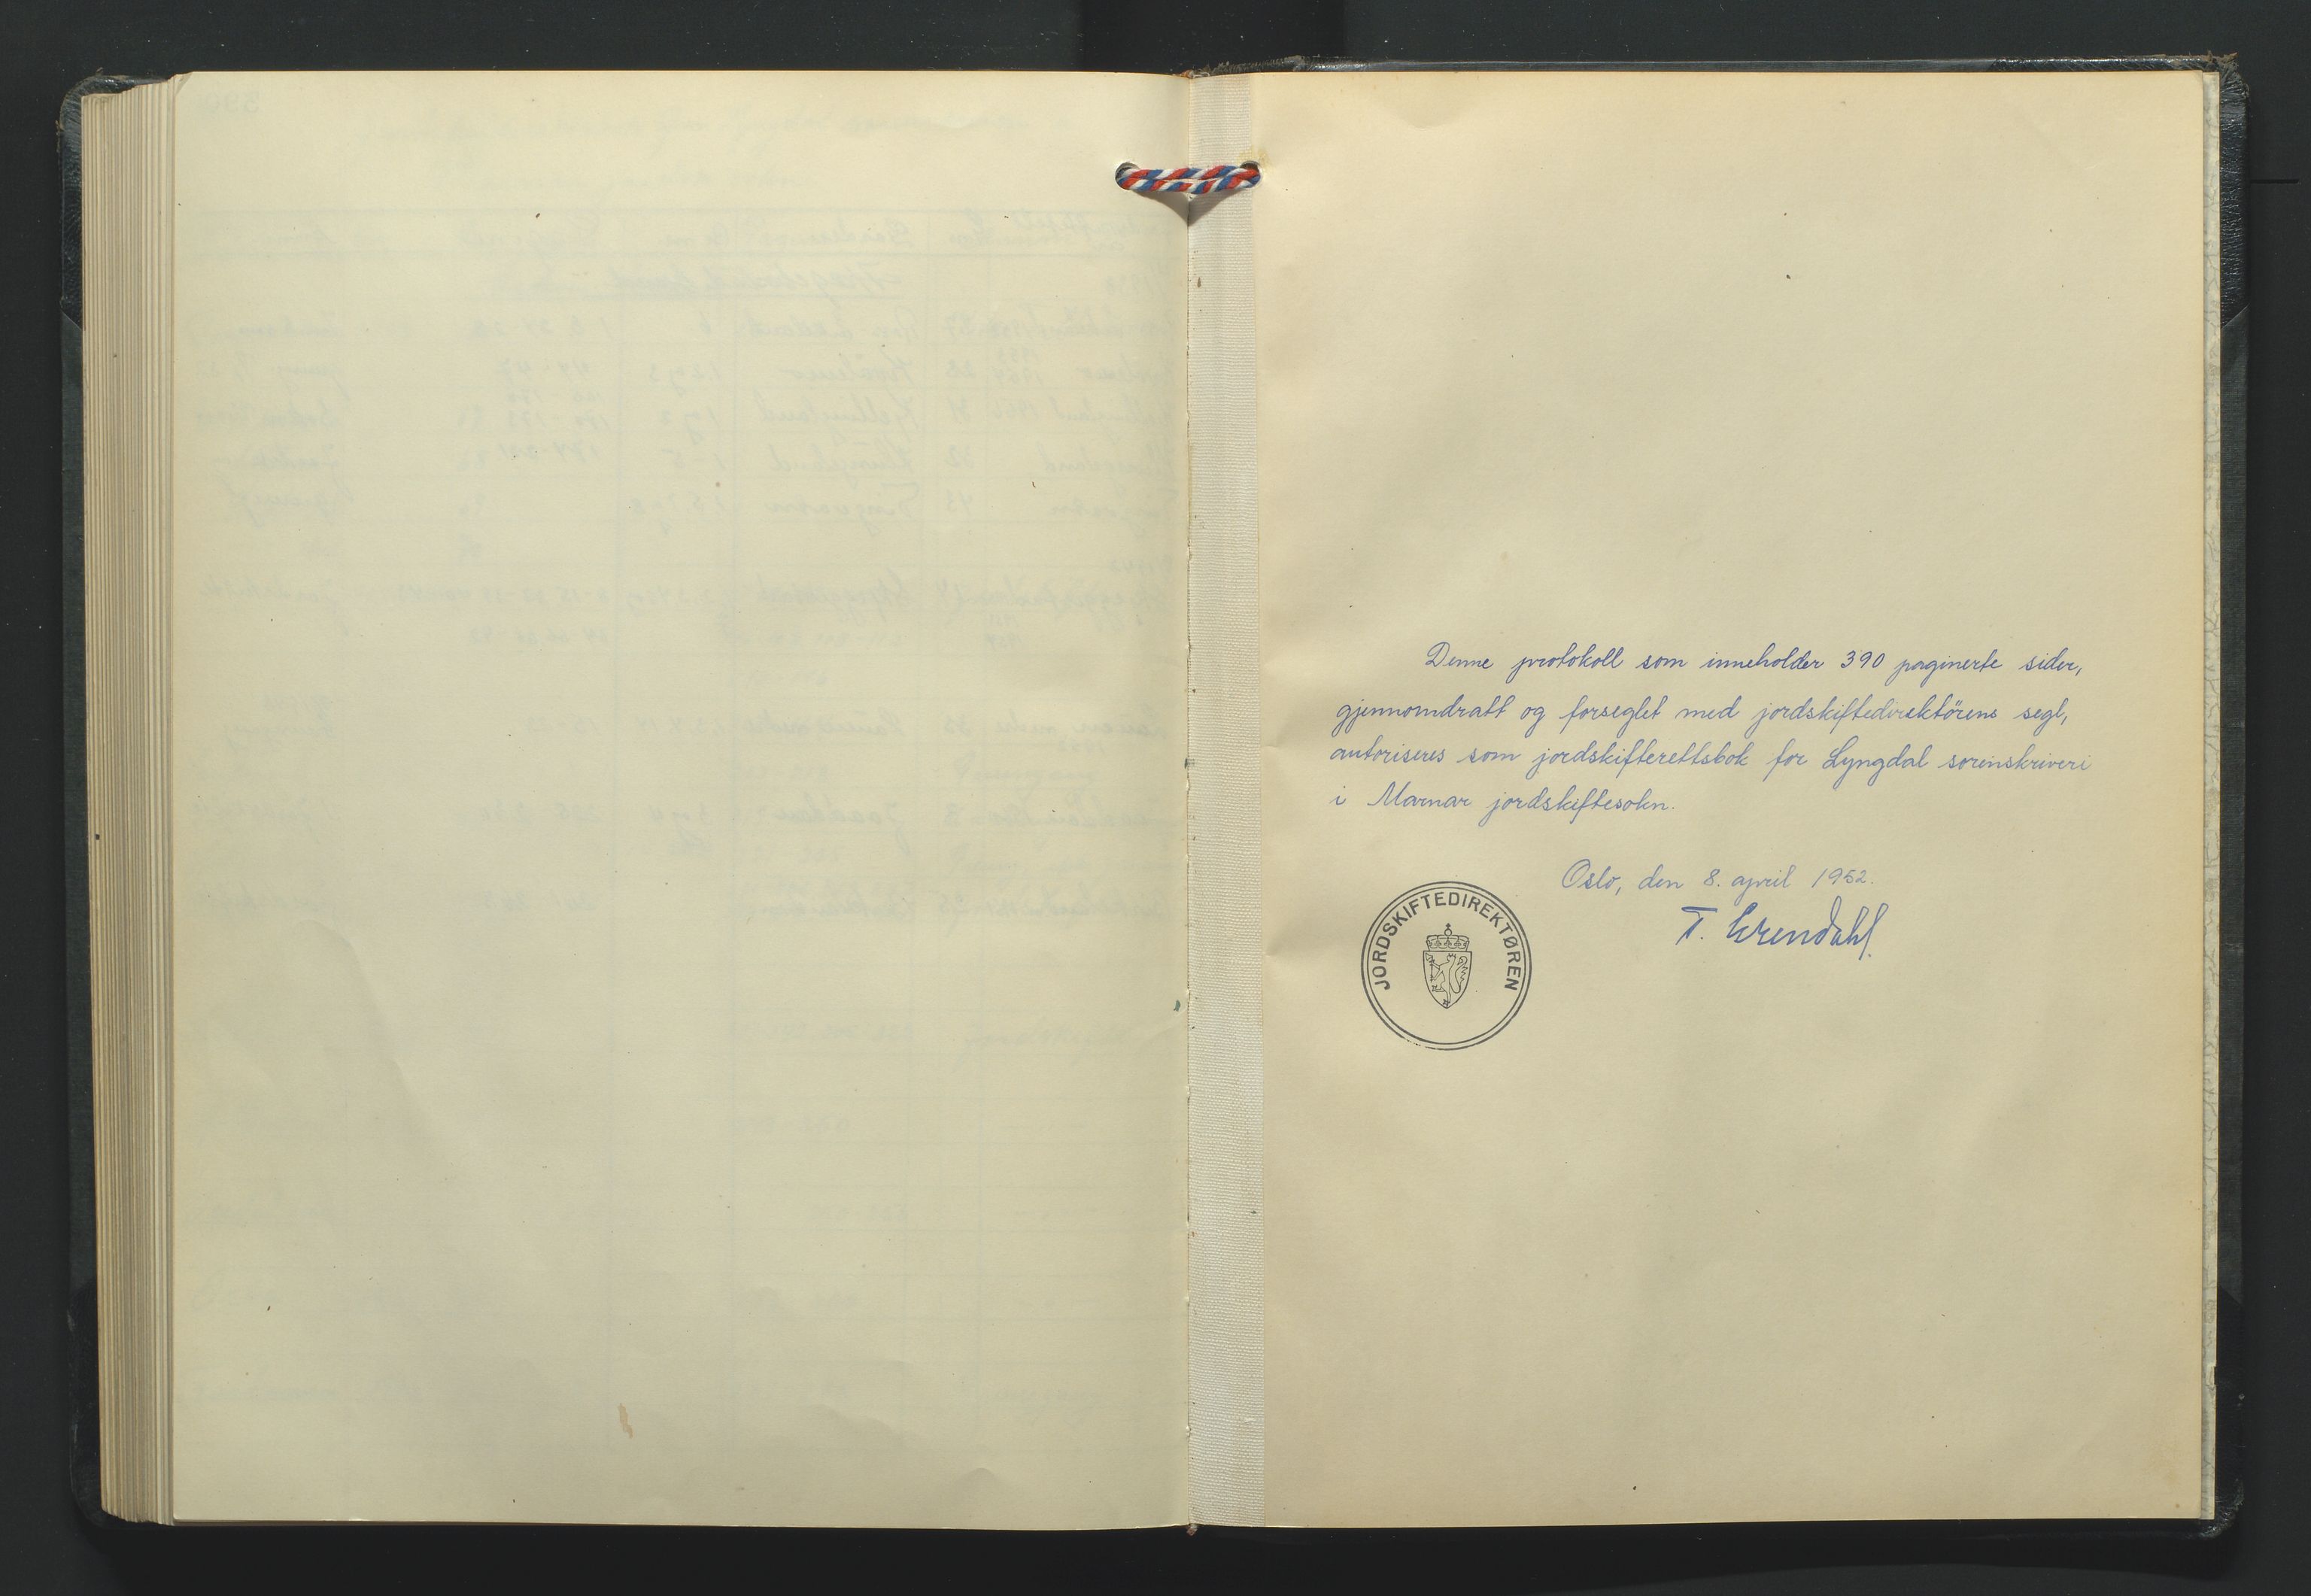 Denne protokoll som inneholder 390 paginerte sider,
gjennomdratt og forseglet med jordskiftedirektörens segl,
autoriseres som jordskifterettsbok for Lyngdal sorenskriveri
i Marnar jordskiftesokn.
Oslo, den 8. april 1952.
T. Grendahl.
JORDSKIFTEDIREKTØREN